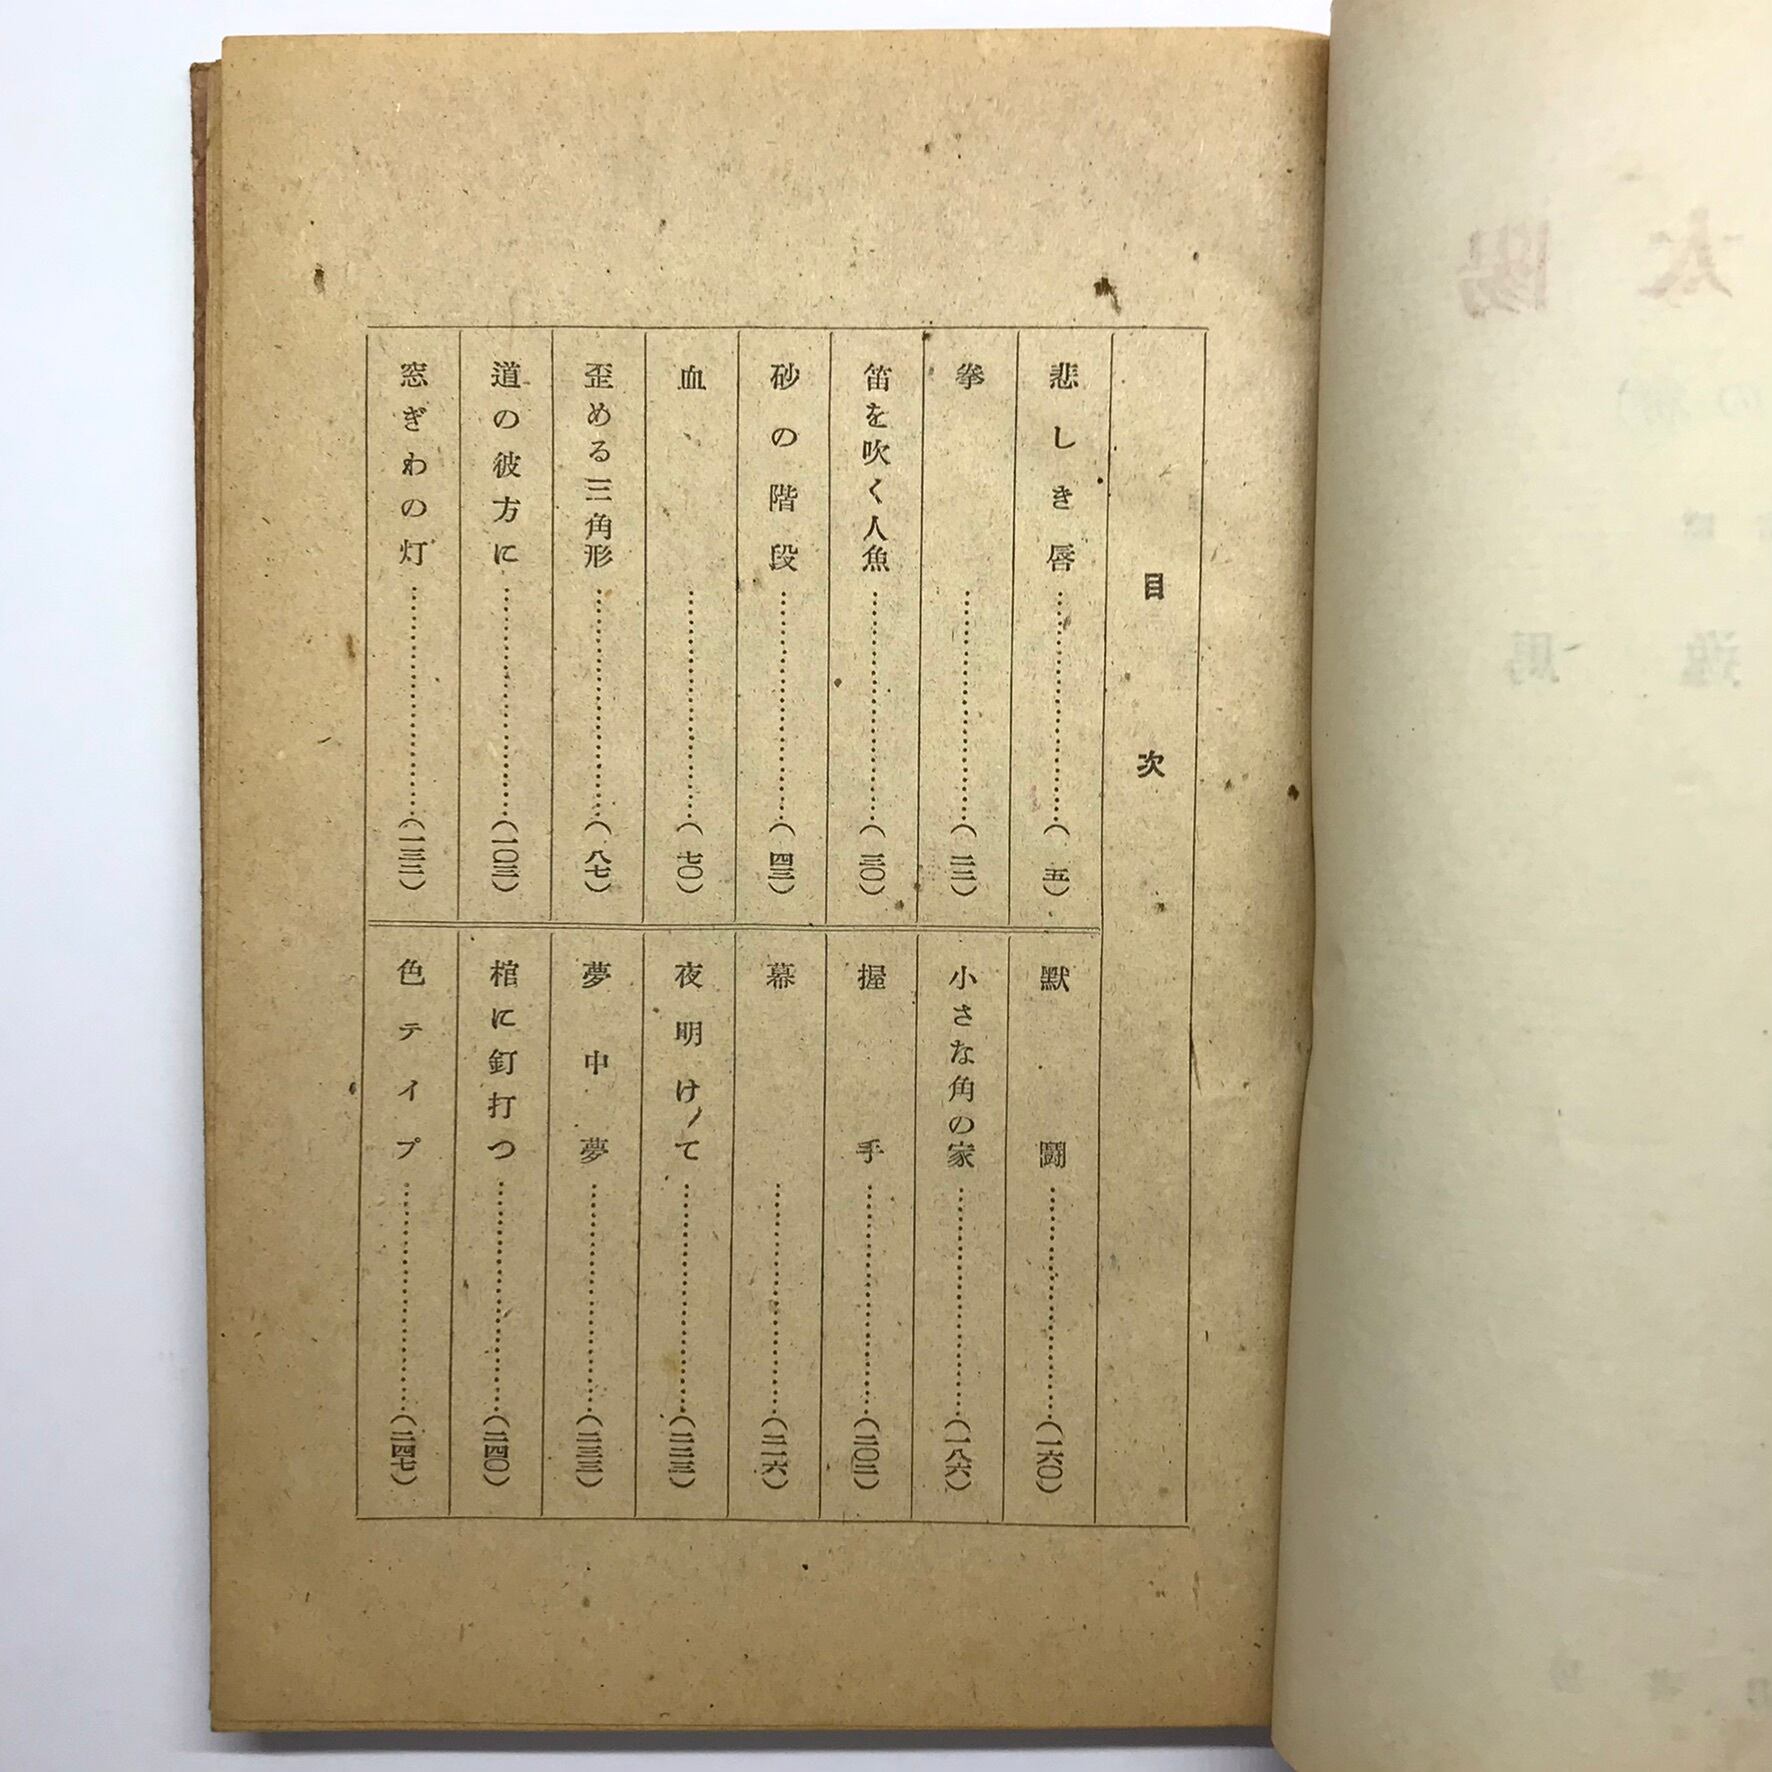 目次
悲しき唇……………………(五)
拳……………………(二二)
笛を吹く人魚……………………(三〇)
砂の階段……………………(四三)
血……………………(七〇)
歪める三角形……………………(八七)
道の彼方に……………………(一〇三)
窓ぎわの灯……………………(一三二)
默闘……………………(一六〇)
小さな角の家……………………(一八六)
握手……………………(二〇二)
幕……………………(二一六)
夜明けて……………………(二二三)
夢中夢……………………(二三三)
棺に釘打つ……………………(二四〇)
色テイプ……………………(二四七)
太陽